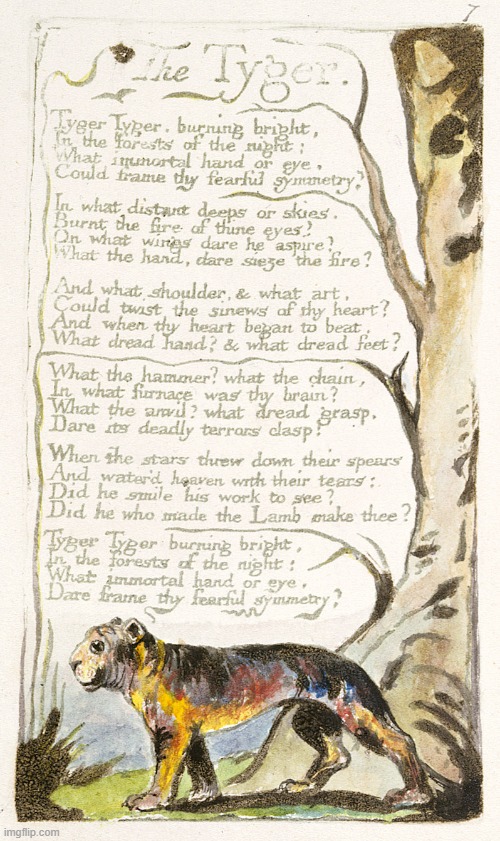 7
The Tyger.
Tyger Tyger. burning bright,
In the forests of the night;
What immortal hand or eye,
Could frame thy fearful symmetry?
In what distant deeps or skies.
Burnt the fire of thine eyes?
On what wings dare he aspire?
What the hand, dare sieze the fire?
And what shoulder, & what art,
Could twist the sinews of thy heart?
And when thy heart began to beat,
What dread hand? & what dread feet?
What the hammer? what the chain,
In what furnace was thy brain?
What the anvil? what dread grasp,
Dare its deadly terrors clasp?
When the stars threw down their spears
And water'd heaven with their tears:
Did he smile his work to see?
Did he who made the Lamb make thee?
Tyger Tyger burning bright,
In the forests of the night:
What immortal hand or eye,
Dare frame thy fearful symmetry?
imgflip.com